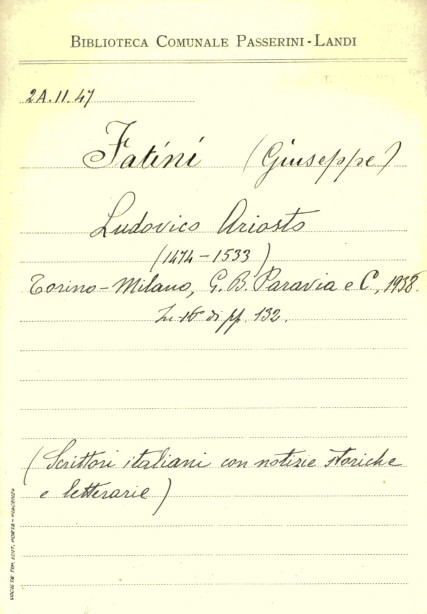 BIBLIOTECA COMUNALE PASSERINI-LANDI
2A.II.47
Fatini (Giuseppe)
Ludovico Ariosto
(1474-1533)
Torino-Milano, G. B. Paravia e C., 1938.
In-16° di pp. 132.
(Scrittori italiani con notizie storiche
e letterarie)